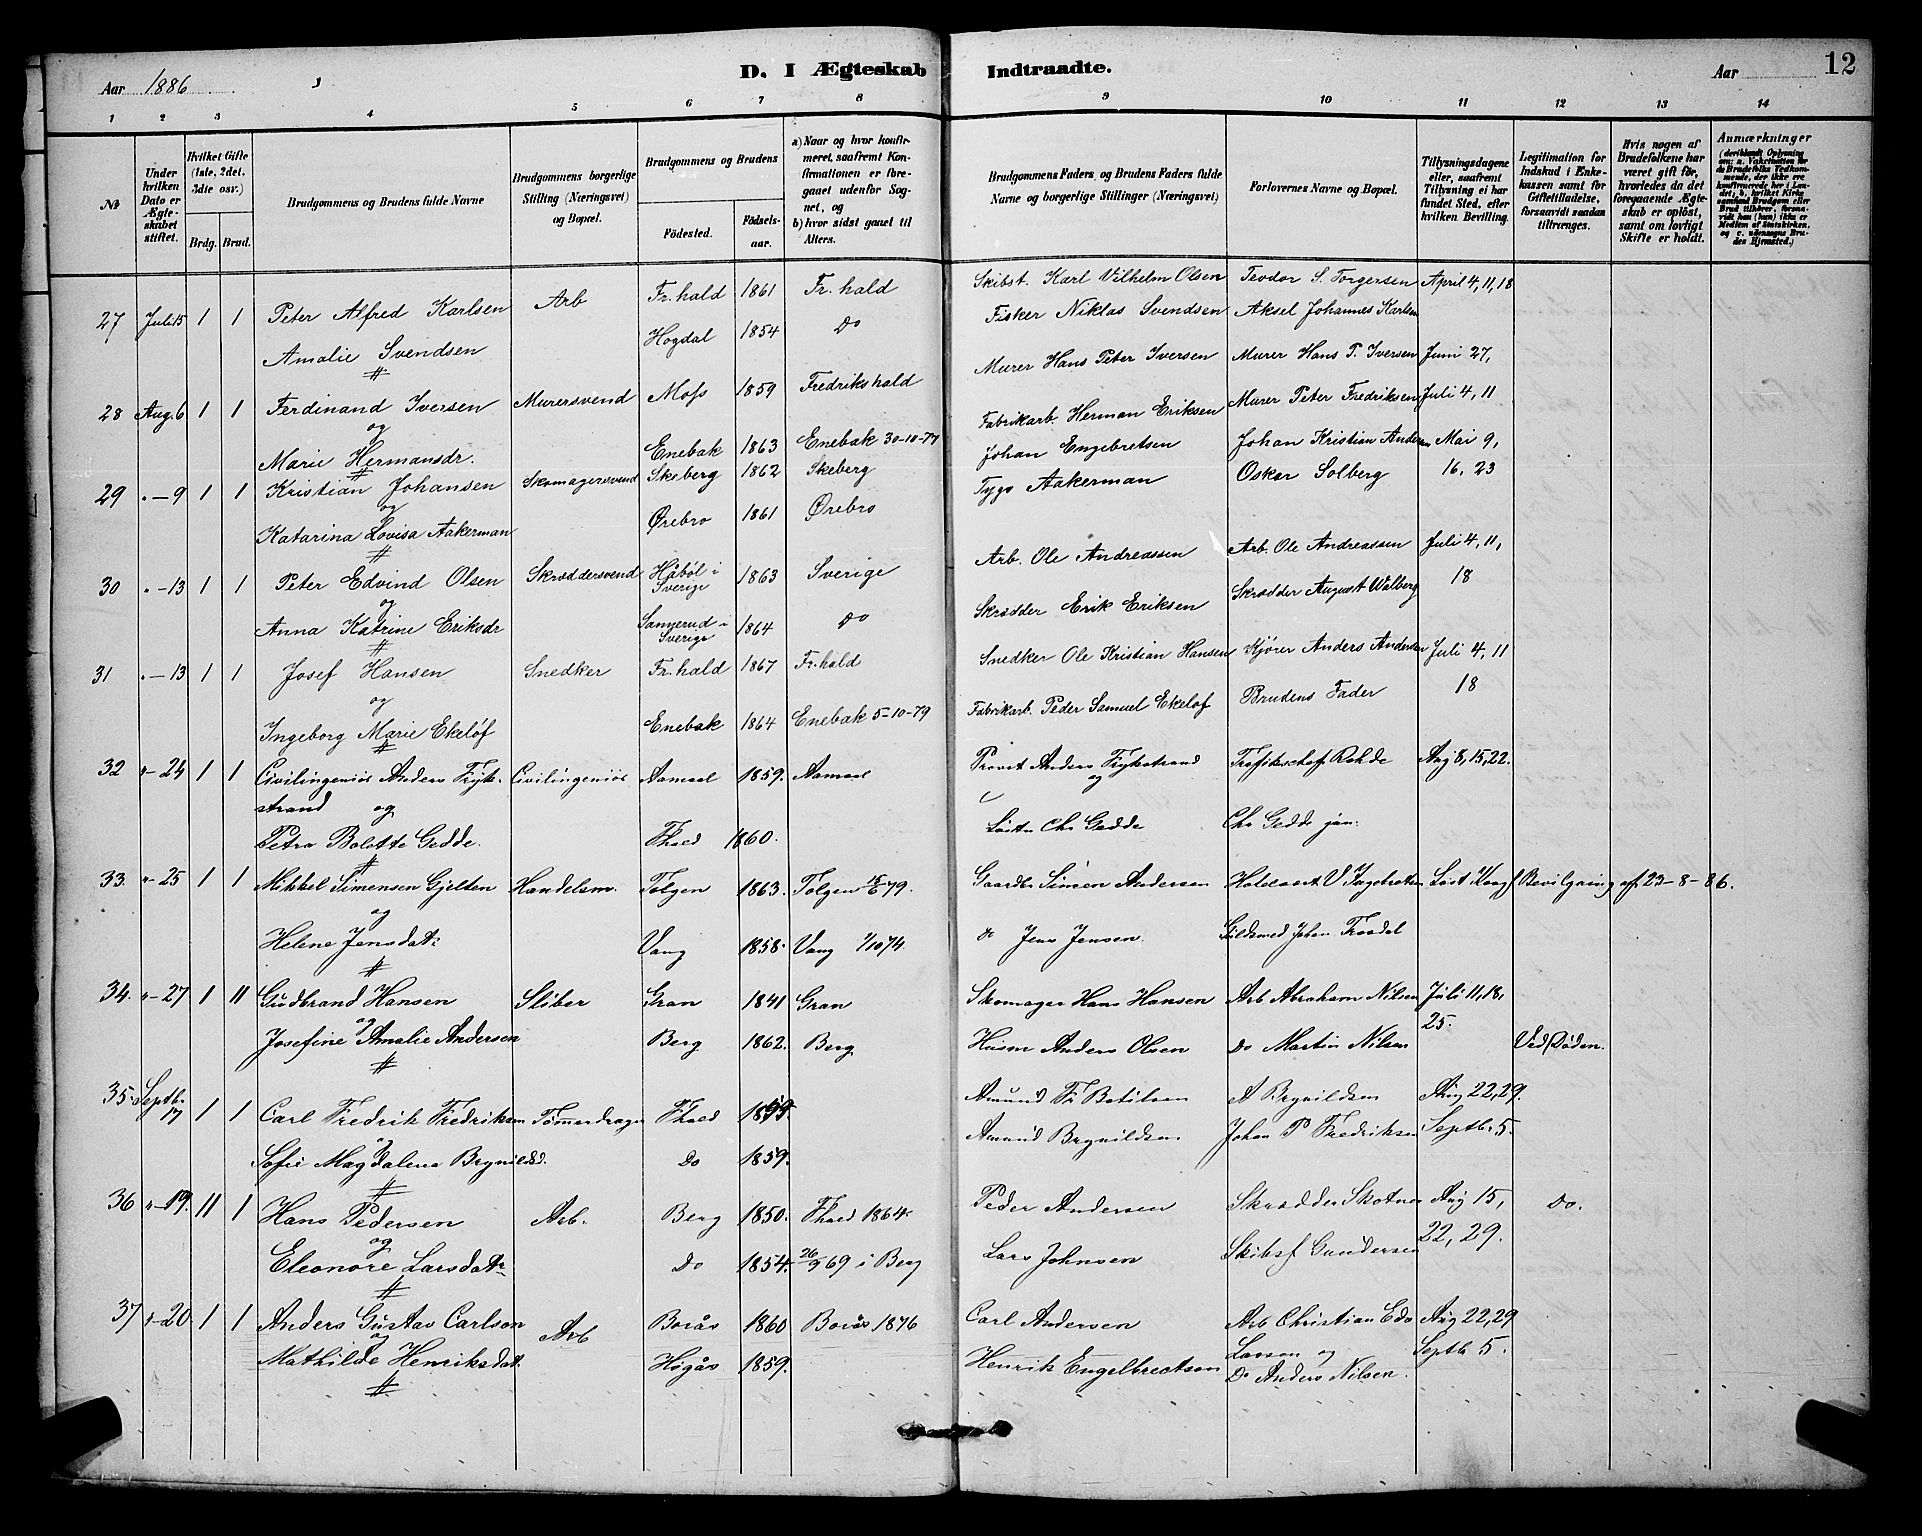 Aar 1886
D. I Ægteskab Indtraadte.
Aar 12
1 2 3 4 5 6 7 8 9 10 11 12 13 14
№
Under hvilken Dato er Ægteskabet stiftet.
Hvilket Gifte (1ste, 2det, 3die osv.)
Brdg. Brud.
Brudgommens og Brudens fulde Navne
Brudgommens borgerlige Stilling (Næringsvei) og Bopæl.
Brudgommens og Brudens
Födested. Födsels-aar.
a) Naar og hvor konfirmeret, saafremt Konfirmationen er foregaaet udenfor Sognet, og
b) hvor sidst gaaet til Alters.
Brudgommens Faders og Brudens Faders fulde Navne og borgerlige Stillinger (Næringsvei)
Forlovernes Navne og Bopæl.
Tillysningsdagene eller, saafremt Tillysning ei har fundet Sted, efter hvilken Bevilling.
Legitimation for Indskud i Enkekassen samt for Giftetilladelse, forsaavidt saadan tiltrænges.
Hvis nogen af Brudefolkene har været gift för, hvorledes da det foregaaende Ægteskab er oplöst, samt om lovligt Skifte er holdt.
Anmærkninger (deriblandt Oplysning om: a. Vaksination for de Brudefolks Vedkommende, der ikke ere konfirmerede her i Landet; b. hvilket Kirkesamfund Brudgom eller Brud tilhörer, forsaavidt han (hun) ikke er Medlem af Statskirken, og c. udensogns Brudes Hjemsted.)
27 Juli 15 1 1 Peter Alfred Karlsen Arb Fr.hald 1861 Fr. hald Skibst. Karl Vilhelm Olsen Teodor S. Torgersen April 4, 11, 18
Amalie Svendsen Hogdal 1854 Do Fisker Niklas Svendsen Aksel Johannes Karlsen
28 Aug. 6 1 1 Ferdinand Iversen Murersvend Moss 1859 Fredrikshald Murer Hans Peter Iversen Murer Hans P. Iversen Juni 27,
og
Marie Hermansdr. Enebak 1863 Enebak 30-10-77 Fabrikarb. Herman Eriksen Murer Peter Fredriksen Juli 4, 11
29 " - 9 1 1 Kristian Johansen Skomagersvend Skeberg 1862 Skeberg Johan Engebretsen Johan Kristian Andersen Mai 9,
og
Katarina Lovisa Aakerman Ørebro 1861 Ørebro Tygo Aakerman Oskar Solberg 16, 23
30 " - 13 1 1 Peter Edvind Olsen Skræddersvend Håböl i Sverige 1863 Sverige Arb. Ole Andreassen Arb. Ole Andreassen Juli 4, 11,
og
Anna Katrine Eriksdr Sannerud i Sverige 1864 Do Skrædder Erik Eriksen Skrædder August Walberg 18
31 " - 13 1 1 Josef Hansen Snedker Fr. hald 1867 Fr. hald Snedker Ole Kristian Hansen Kjörer Anders Andersen Juli 4, 11
og
Ingeborg Marie Ekelöf Enebak 1864 Enebak 5-10-79 Fabrikarb. Peder Samuel Ekelöf Brudens Fader 18
32 " - 24 1 1 Civilingeniör Anders Frykstrand Civilingeniör Aamaal 1859. Aamaal Provst Anders Frykstrand Trafikschef Rohde Aug 8, 15, 22.
og
Petra Bolette Gedde. Fhald 1860. Chr Gedde Chr Gedde jun.
33. " - 25 1 1 Mikkel Simensen Gjelten Handelsm. Tolgen 1863. Tolgen 79. Gaardbr Simen Andersen Löst Kongl Bevilgning af 23-8-86.
og
Helene Jensdatr Vang 1858. Vang 1/10 74. do Jens Jensen. Guldsmed Johan
34. " - 27 1 11 Gudbrand Hansen Sliber Gran 1841 Gran Skomager Hans Hansen Arb Abraham Nilsen Juli 11, 18,
og 25.
Josefine Amalie Andersen Berg 1862. Berg Husm Anders Olsen Do Martin Nilsen Ved Döden.
35. Septbr 17 1 1 Carl Fredrik Fredriksen Tömmerdrager Fhald 1859. Amund Fr A Brynildsen Aug 22, 29.
og
Sofie Magdalena Brynildsd. Do 1859. Amund Brynildsen Johan P Fredriksen Septb. 5.
36 " - 19. 11 1 Hans Pedersen Arb. Berg 1850. Fhald 1864. Peder Andersen Skrædder Skotnes Aug 15, Do.
og
Eleonore Larsdatr Do 1854. 26/9 69 i Berg Lars Johnsen Skibsf Gundersen 22, 29.
37 " - 20. 1 1 Anders Gustav Carlsen Arb Borås 1860 Borås 1876 Carl Andersen Arb Christian Edv Aug 22, 29
og Larsen og
Mathilde Henriksdat. Högås 1859. Henrik Engelbrectson Do Anders Nilsen. Septb 5.